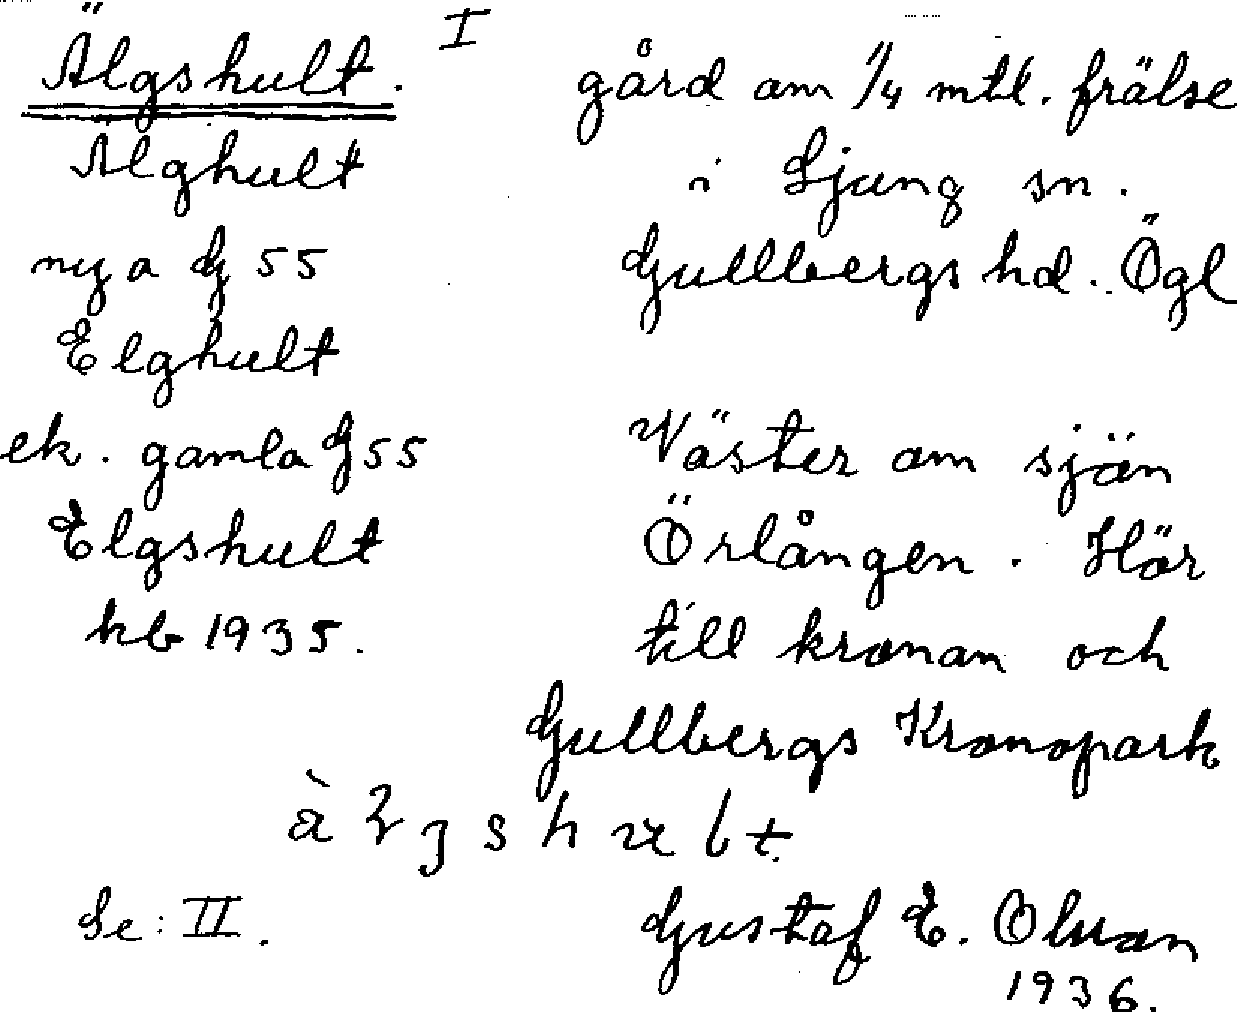 Älgshult. I
gård om 1/4 mtl. frälse
Älghult
i Ljung sn.
nya G 55
Gullbergs hd. Ögl
Elghult
ek. gamla G 55
Väster om sjön
Elgshult
Örlången. Hör
kb 1935.
till kronan och
Gullbergs Kronopark
Se: II.
Gustaf E. Olson
1936.